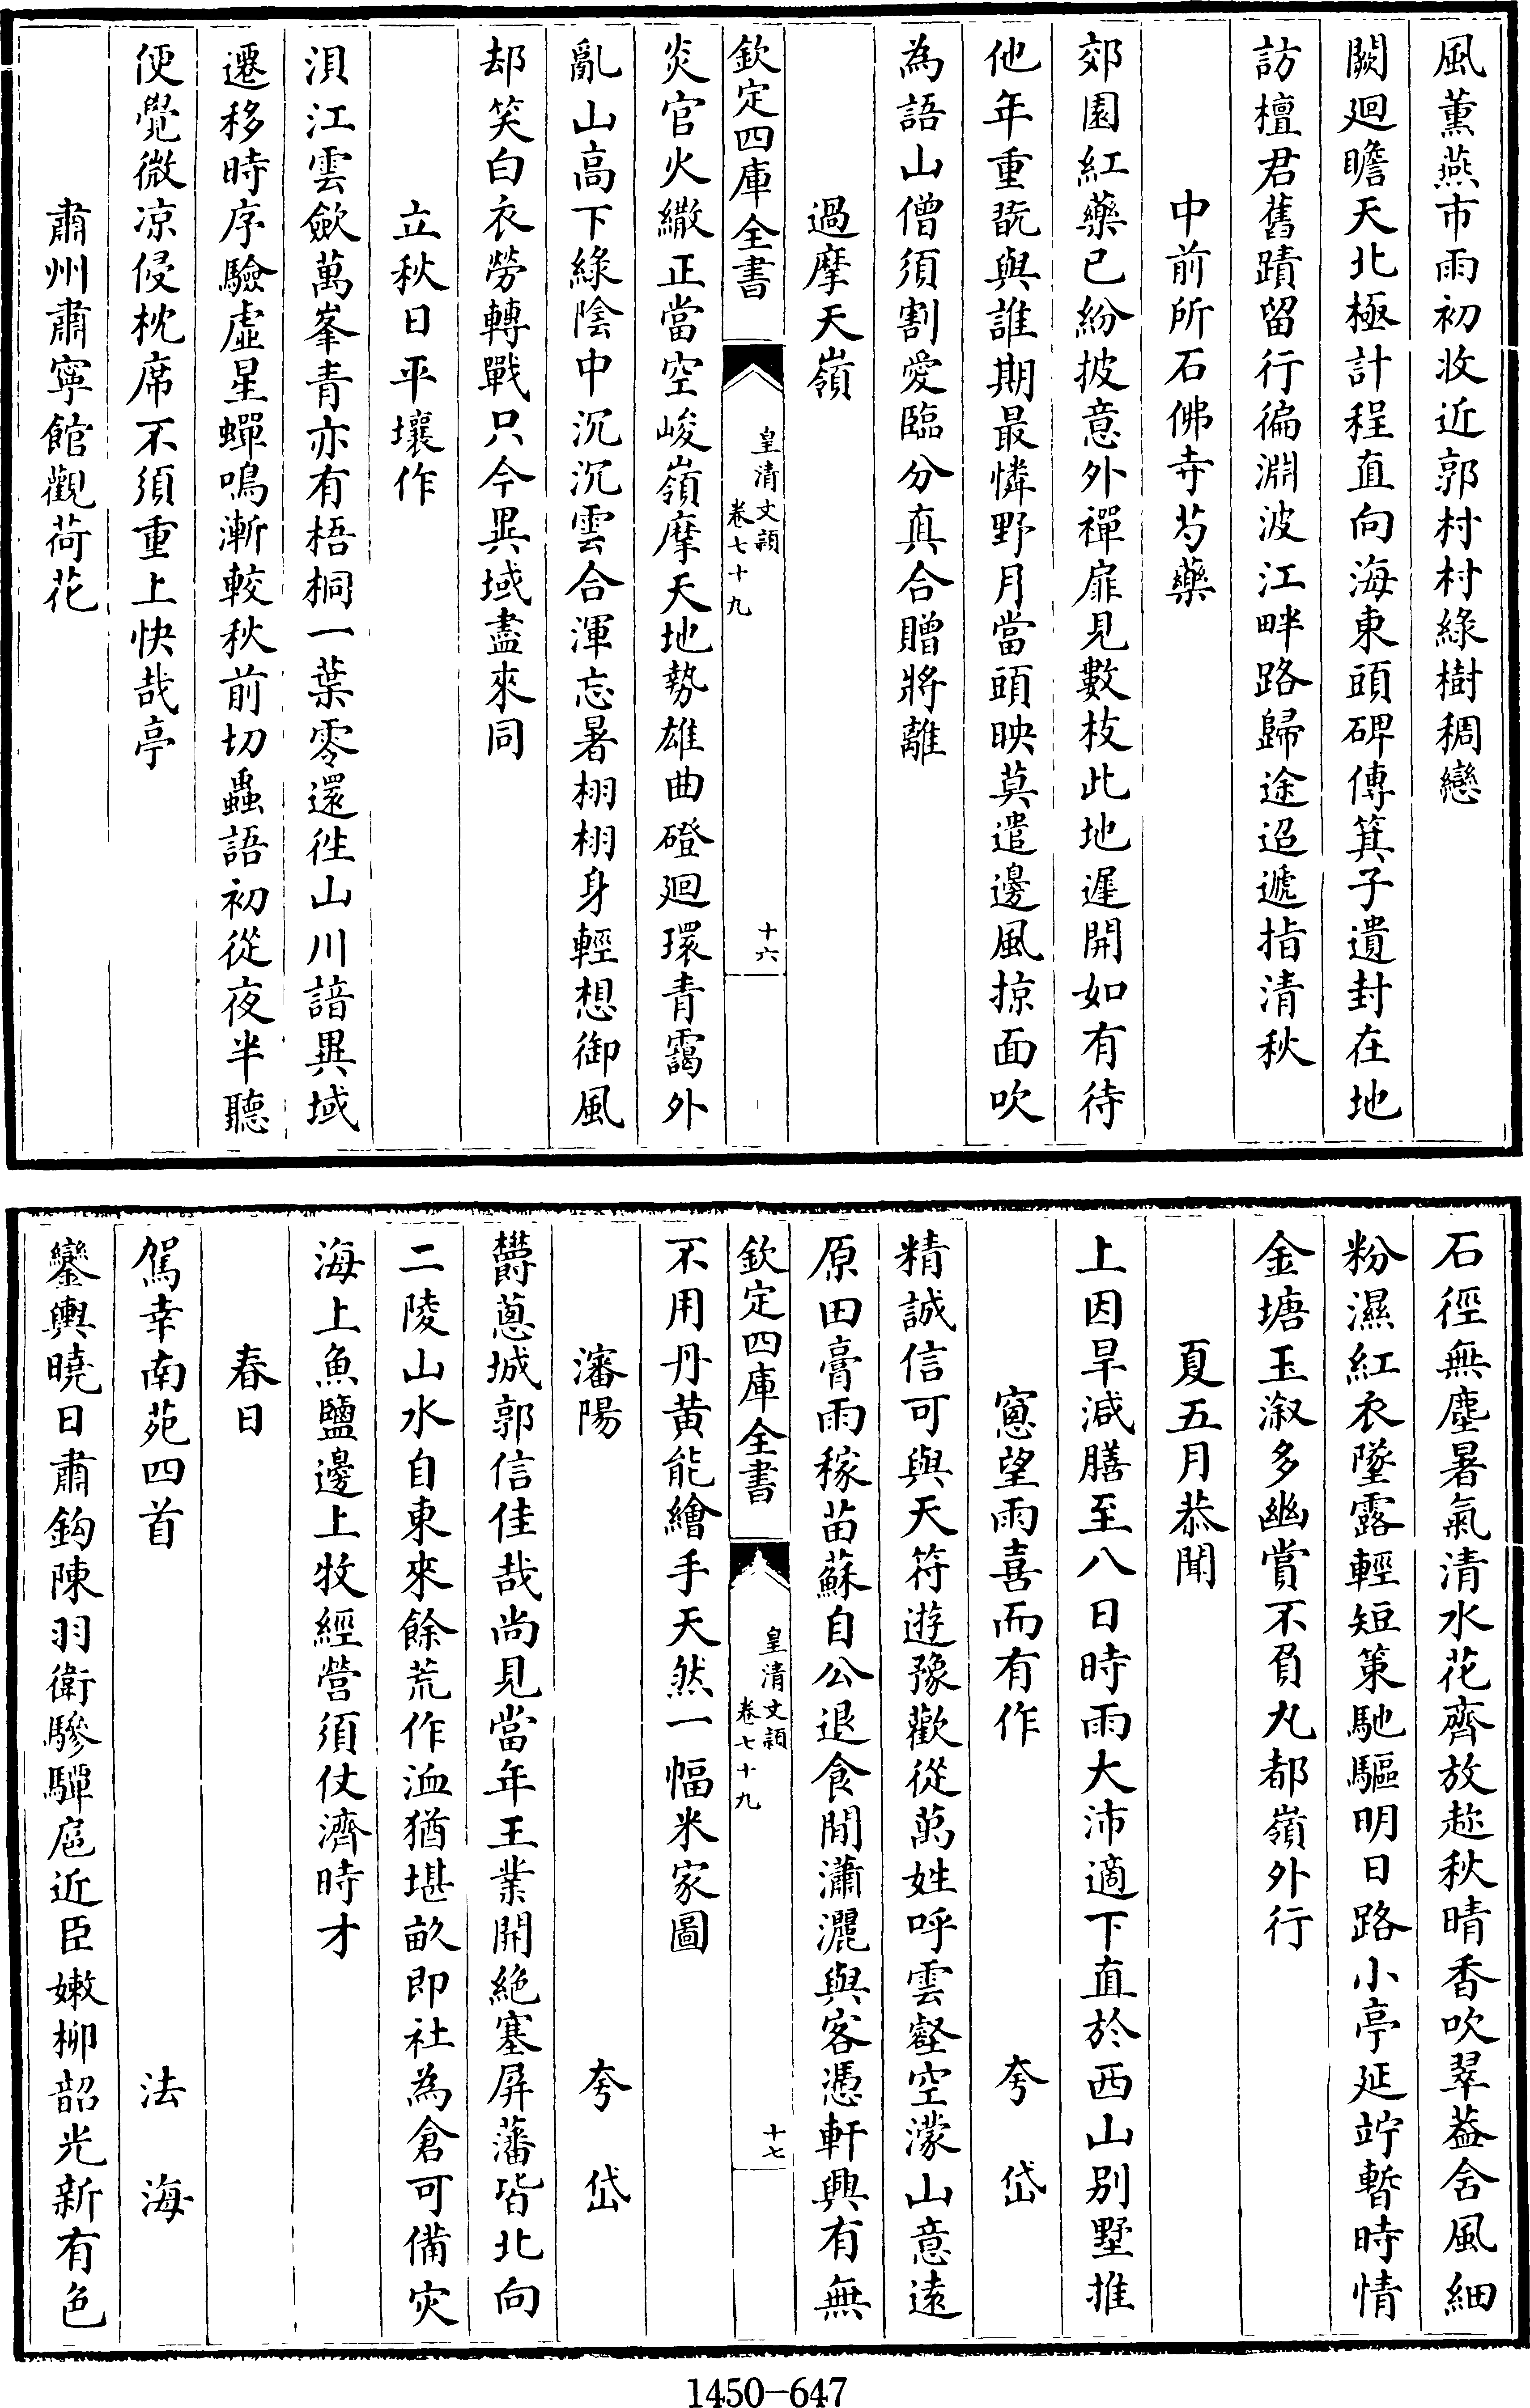 風薰燕市雨初收近郭村村綠樹稠戀
闕廻瞻天北極計程直向海東頭碑傳箕子遺封在地
訪檀君舊蹟留行徧淵波江畔路歸途迢遞指清秋
中前所石佛寺芍藥
郊園紅藥已紛披意外禪扉見數枝此地遲開如有待
他年重翫與誰期最憐野月當頭映莫遣邊風掠面吹
為語山僧須割愛臨分真合贈將離
過摩天嶺
欽定四庫全書
皇清文穎
卷七十九
十六
炎官火繖正當空峻嶺摩天地勢雄曲磴廻環青靄外
亂山高下綠陰中沉沉雲合渾忘暑栩栩身輕想御風
却笑白衣勞轉戰只今異域盡來同
立秋日平壤作
浿江雲歛萬峯青亦有梧桐一葉零還徃山川諳異域
遷移時序驗虛星蟬鳴漸較秋前切蟲語初從夜半聽
便覺微凉侵枕席不須重上快哉亭
肅州肅寧館觀荷花
石徑無塵暑氣清水花齊放趂秋晴香吹翠葢舍風細
粉濕紅衣墜露輕短策馳驅明日路小亭延竚暫時情
金塘玉溆多幽賞不負丸都嶺外行
夏五月恭聞
上因旱減膳至八日時雨大沛適下直於西山別墅推
窻望雨喜而有作
夸岱
精誠信可與天符遊豫歡從萬姓呼雲壑空濛山意遠
原田膏雨稼苗蘇自公退食閒瀟灑與客憑軒興有無
欽定四庫全書
皇清文穎
卷七十九
十七
不用丹黃能繪手天然一幅米家圖
瀋陽
夸岱
欝蔥城郭信佳哉尚見當年王業開絶塞屏藩皆北向
二陵山水自東來餘荒作洫猶堪畝即社為倉可備災
海上魚鹽邊上牧經營須仗濟時才
春日
駕幸南苑四首
法海
鑾輿曉日肅鈎陳羽衛驂驒扈近臣嫩栁韶光新有色
1450-647